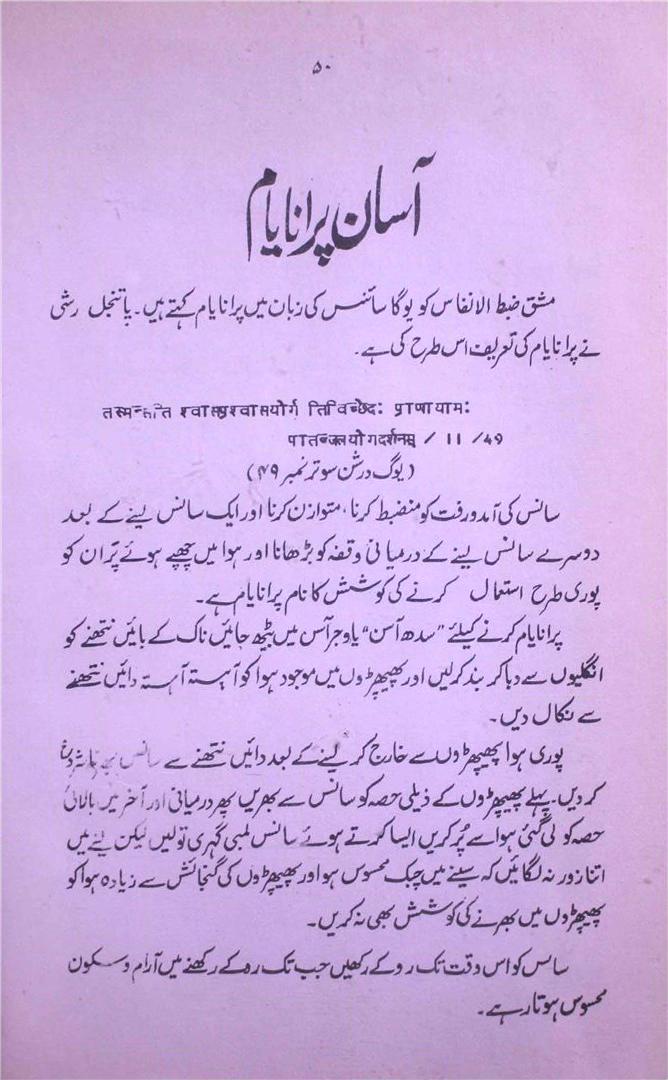 ۵۰
آسان پرانایام
مشق ضبط الانفاس کو یوگا سائنس کی زبان میں پرانایام کہتے ہیں۔ پاتنجل رشی
نے پرانایام کی تعریف اس طرح کی ہے۔
श्वासप्रश्वासयोर्ग तिविच्छेद: प्राणायाम:
पातञ्जलयोगदर्शनम् / 11 /49
(یوگ درشن سوتر نمبر ۴۹)
سانس کی آمد و رفت کو منضبط کرنا، متوازن کرنا اور ایک سانس لینے کے بعد
دوسرے سانس لینے کے درمیانی وقفہ کو بڑھانا اور ہوا میں چھپے ہوئے پَران کو
پوری طرح استعمال کرنے کی کوشش کا نام پرانایام ہے۔
پرانایام کرنے کیلئے "سدھ آسن" یا وجر آسن میں بیٹھ جائیں ناک کے بائیں نتھنے کو
انگلیوں سے دبا کر بند کرلیں اور پھیپھڑوں میں موجود ہوا کو آہستہ آہستہ دائیں نتھنے
سے نکال دیں۔
پوری ہوا پھیپھڑوں سے خارج کر لینے کے بعد دائیں نتھنے سے سانس شروع
کر دیں۔ پہلے پھیپھڑوں کے ذیلی حصہ کو سانس سے بھریں پھر درمیانی اور آخر میں بالائی
حصہ کو لی گئی ہوا سے پُر کریں ایسا کرتے ہوئے سانس لمبی گہری تو لیں لیکن لینے میں
اتنا زور نہ لگائیں کہ سینے میں چبک محسوس ہو اور پھیپھڑوں کی گنجائش سے زیادہ ہوا کو
پھیپھڑوں میں بھرنے کی کوشش بھی نہ کریں۔
سانس کو اس وقت تک روکے رکھیں جب تک روکے رکھنے میں آرام و سکون
محسوس ہوتا رہے۔